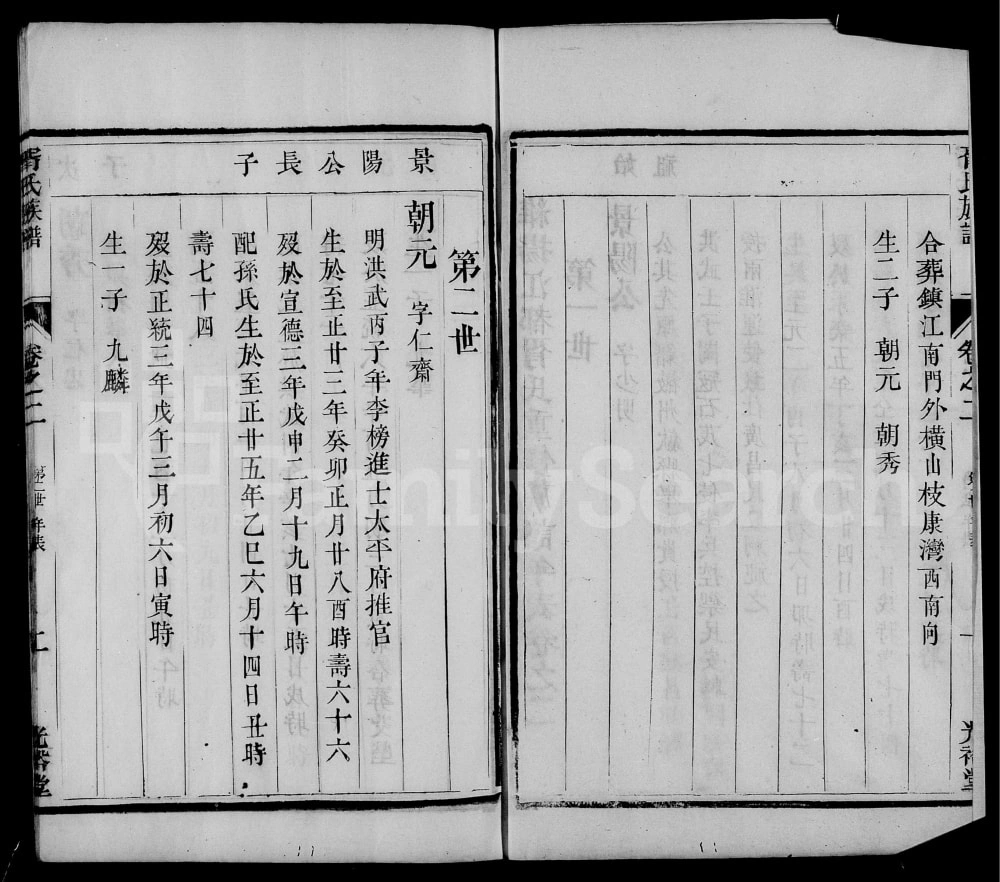 合葬鎮江南門外橫山枝康灣西南向
生二子 朝元 朝秀
光裕堂
第二世
景陽公長子
朝元 字仁齋
明洪武丙子年李榜進士太平府推官
生於至正廿三年癸卯正月廿八酉時壽六十六
歿於宣德三年戊申二月十九日午時
配孫氏生於至正廿五年乙巳六月十四日丑時
壽七十四
歿於正統三年戊午三月初六日寅時
生一子 九麟
胥氏族譜
卷之二
光裕堂
FamilySearch